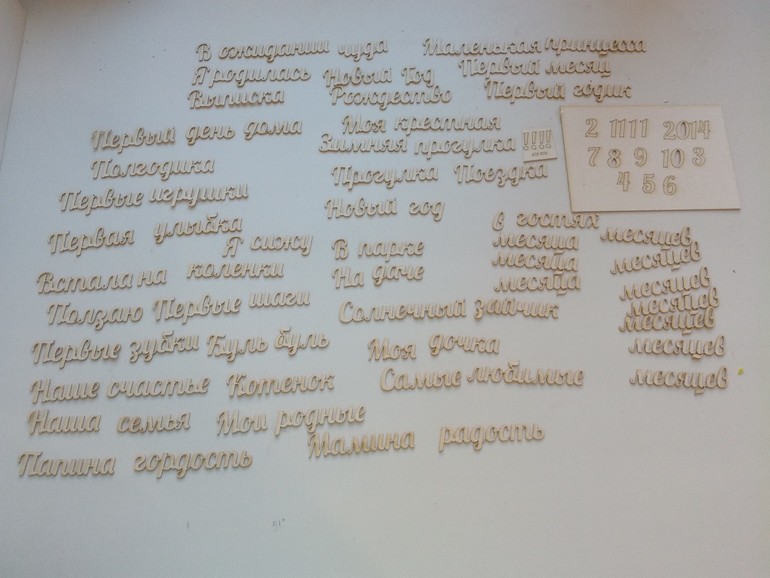 В ожидании чуда Маленькая принцесса
Я родилась Новый Год Первый месяц
Выписка Рождество Первый годик
Первый день дома Моя крестная
Зимняя прогулка !!!!
2 1111 2014
7 8 9 10 3
4 5 6
Полгодика Прогулка Поездка
Первые игрушки Новый год
Первая улыбка в гостях
Я сижу В парке месяца месяцев
Встала на коленки На даче месяца месяцев
месяца месяцев
Ползаю Первые шаги Солнечный зайчик месяцев
месяцев
Первые зубки Буль буль Моя дочка месяцев
Наше счастье Котенок Самые любимые месяцев
Наша семья Мои родные
Папина гордость Мамина радость